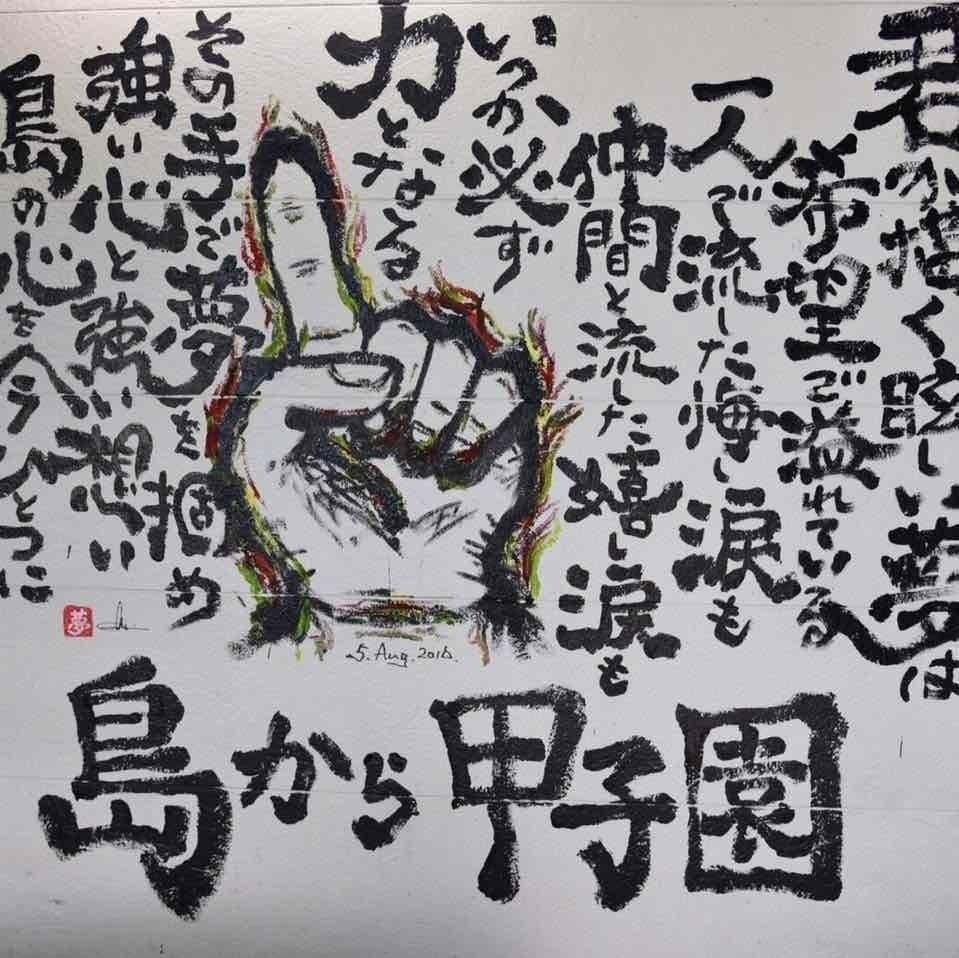 君が描く眩しい夢は
希望で溢れている
一人で流した悔し涙も
仲間と流した嬉し涙も
いつか必ず
力となる
その手で夢を掴め
強い心と強い想い
島の心を今ひとつに
夢
5. Aug. 2016.
島から甲子園